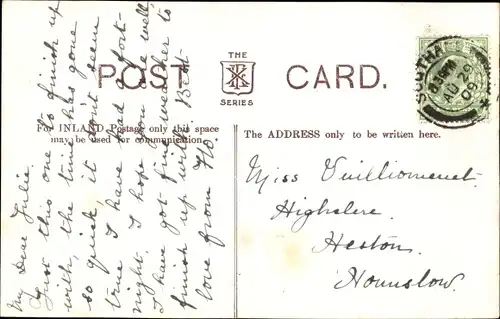 THE
POST CARD.
SERIES
For INLAND Postage only this space
may be used for communication.
The ADDRESS only to be written here.
My Dear Julie.
Just this one to finish up
with, the time has gone
so quick it don't seem
true I have had a fort-
night. I hope you are well
I have got fine weather to
finish up with. Best
love from
Miss Vuilliomenet
Highclere.
Heston.
Hounslow.
SOUTHA
8.15PM
AU 29
09